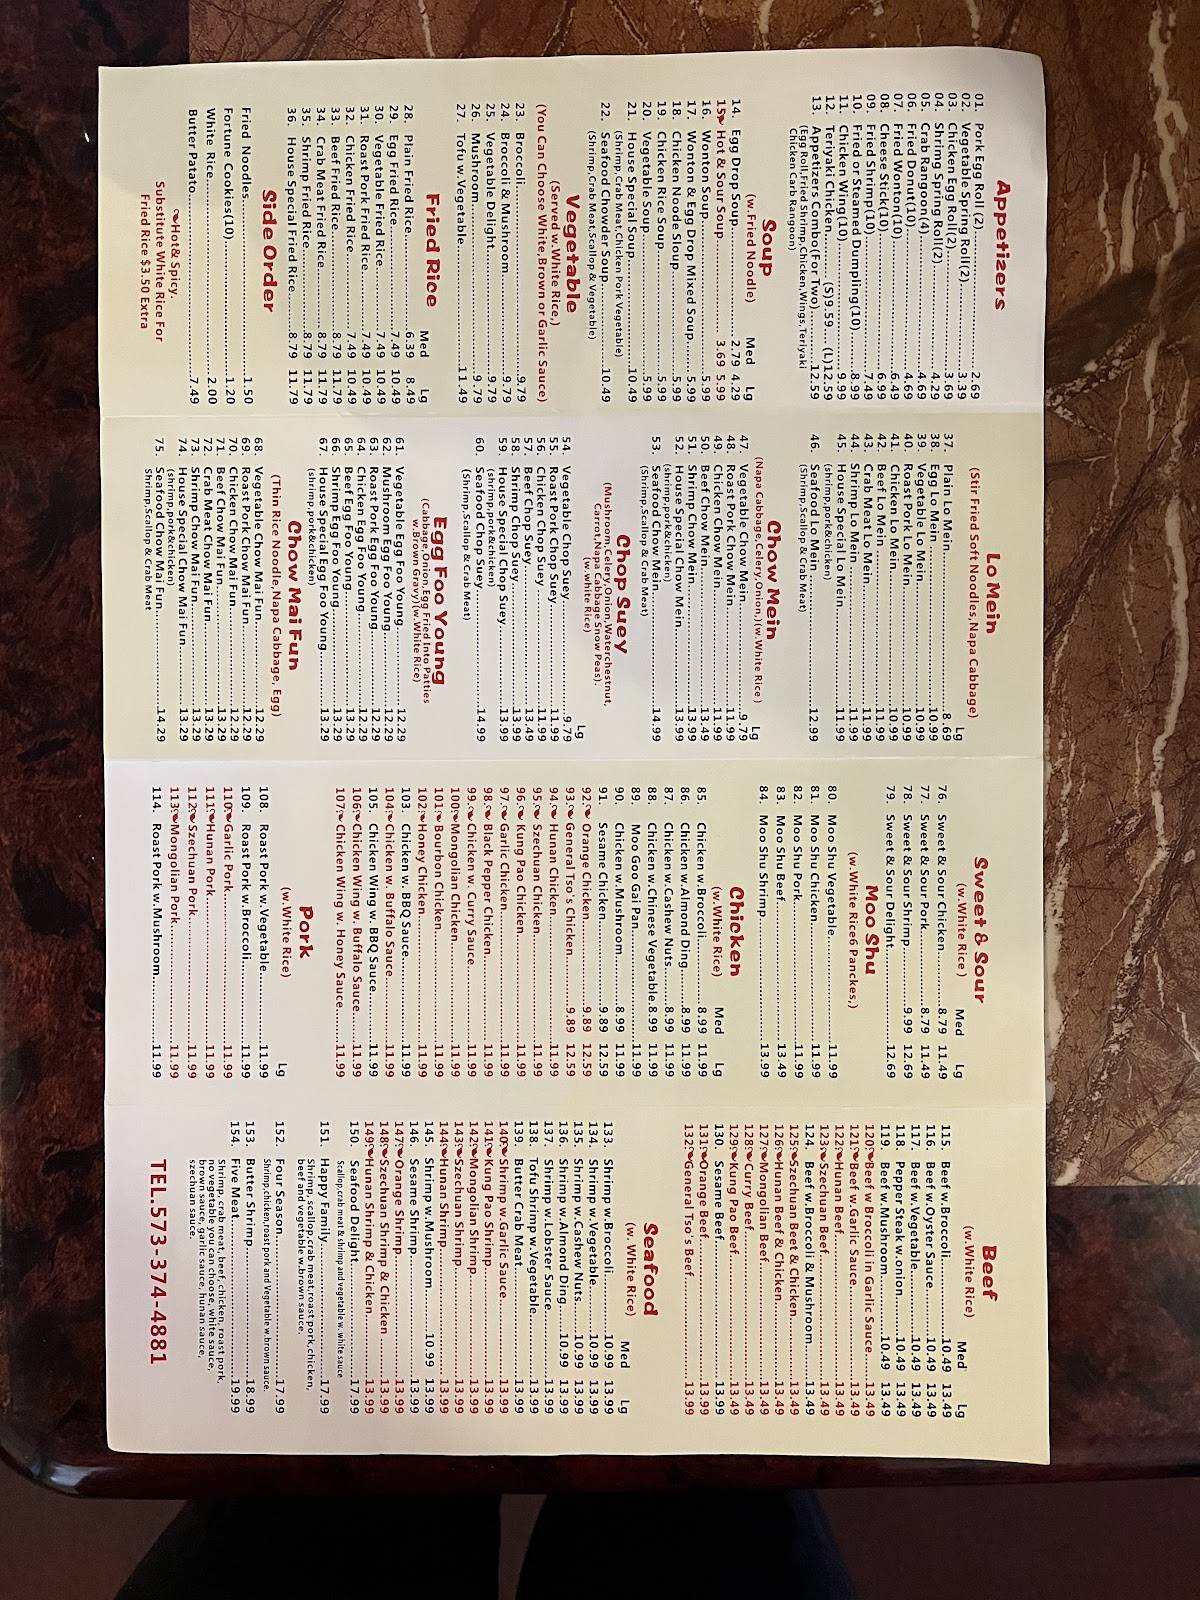 Appetizers
01. Pork Egg Roll (2)..........2.69
02. Vegetable Spring Roll(2)..........3.39
03. Chicken Egg Roll(2)..........3.69
04. Shrimg Spring Roll(2)..........4.29
05. Crab Rangoon(4)..........4.69
06. Fried Donut(10)..........4.69
07. Fried Wonton(10)..........6.49
08. Cheese Stick(10)..........6.99
09. Fried Shrimp(10)..........7.49
10. Fried or Steamed Dumpling(10)..8.99
11. Chicken Wing(10)..........9.99
12. Teriyaki Chicken.......... (S)9.59.... (L)12.59
13. Appetizers Combo(For Two)......12.59
(Egg Roll,Fried Shrimp,Chicken,Wings,Teriyaki
Chicken Carb Rangoon)
Soup
(w.Fried Noodle)
Med Lg
14. Egg Drop Soup..........2.79 4.29
15. Hot & Sour Soup..........3.69 5.99
16. Wonton Soup..........5.99
17. Wonton & Egg Drop Mixed Soup......5.99
18. Chicken Noode Sloup..........5.99
19. Chicken Rice Soup..........5.99
20. Vegetable Soup..........5.99
21. House Special Soup..........10.49
(Shrimp,Crab Meat,Chicken Pork Vegetable)
22. Seafood Chowder Soup..........10.49
(Shrimp,Crab Meat,Scallop & Vegetable)
Vegetable
(Served w.White Rice,)
(You Can Choose White,Brown or Garlic Sauce)
23. Broccoli..........9.79
24. Broccoli & Mushroom..........9.79
25. Vegetable Delight..........9.79
26. Mushroom..........9.79
27. Tofu w.Vegetable..........11.49
Fried Rice
Med Lg
28. Plain Fried Rice..........6.39 8.49
29. Egg Fried Rice..........7.49 10.49
30. Vegetable Fried Rice..........7.49 10.49
31. Roast Pork Fried Rice..........7.49 10.49
32. Chicken Fried Rice..........7.49 10.49
33. Beef Fried Rice..........8.79 11.79
34. Crab Meat Fried Rice..........8.79 11.79
35. Shrimp Fried Rice..........8.79 11.79
36. House Special Fried Rice......8.79 11.79
Side Order
Fried Noodles..........1.50
Fortune Cookies(10)..........1.20
White Rice..........2.00
Butter Patato..........7.49
Hot& Spicy.
Substitute White Rice For
Fried Rice $3.50 Extra
Lo Mein
(Stir Fried Soft Noodles,Napa Cabbage)
Lg
37. Plain Lo Mein..........8.69
38. Egg Lo Mein..........10.99
39. Vegetable Lo Mein..........10.99
40. Roast Pork Lo Mein..........10.99
41. Chicken Lo Mein..........10.99
42. Beef Lo Mein..........11.99
43. Crab Meat Lo Mein..........11.99
44. Shrimp Lo Mein..........11.99
45. House Special Lo Mein..........11.99
(shrimp,pork&chicken)
46. Seafood Lo Mein..........12.99
(Shrimp,Scallop & Crab Meat)
Chow Mein
(Napa Cabbage,Celery,Onion,)(w.White Rice )
Lg
47. Vegetable Chow Mein..........9.79
48. Roast Pork Chow Mein..........11.99
49. Chicken Chow Mein..........11.99
50. Beef Chow Mein..........13.49
51. Shrimp Chow Mein..........13.99
52. House Special Chow Mein..........13.99
(shrimp,pork&chicken)
53. Seafood Chow Mein..........14.99
(Shrimp,Scallop & Crab Meat)
Chop Suey
(Mushroom,Celery,Onion,Waterchestnut,
Carrot,Napa Cabbage Snow Peas).
(w.White Rice)
Lg
54. Vegetable Chop Suey..........9.79
55. Roast Pork Chop Suey..........11.99
56. Chicken Chop Suey..........11.99
57. Beef Chop Suey..........13.49
58. Shrimp Chop Suey..........13.99
59. House Special Chop Suey..........13.99
(Shrimp,pork&chicken)
60. Seafood Chop Suey..........14.99
(Shrimp,Scallop & Crab Meat)
Egg Foo Young
(Cabbage,Onion,Egg Fried Into Patties
w.Brown Gravy)(w.White Rice)
61. Vegetable Egg Foo Young..........12.29
62. Mushroom Egg Foo Young..........12.29
63. Roast Pork Egg Foo Young..........12.29
64. Chicken Egg Foo Young..........12.29
65. Beef Egg Foo Young..........13.29
66. Shrimp Egg Foo Young..........13.29
67. House Special Egg Foo Young......13.29
(shrimp,pork&chicken)
Chow Mai Fun
(Thin Rice Noodle,Napa Cabbage, Egg)
68. Vegetable Chow Mai Fun..........12.29
69. Roast Pork Chow Mai Fun..........12.29
70. Chicken Chow Mai Fun..........12.29
71. Beef Chow Mai Fun..........13.29
72. Crab Meat Chow Mai Fun..........13.29
73. Shrimp Chow Mai Fun..........13.29
74. House Special Chow Mai Fun......13.29
(shrimp,pork&chicken)
75. Seafood Chow Mai Fun..........14.29
Shrimp,Scallop & Crab Meat
Sweet & Sour
(w.White Rice )
Med Lg
76. Sweet & Sour Chicken..........8.79 11.49
77. Sweet & Sour Pork..........8.79 11.49
78. Sweet & Sour Shrimp..........9.99 12.69
79. Sweet & Sour Delight..........12.69
Moo Shu
(w.White Rice6 Panckes,)
80. Moo Shu Vegetable..........11.99
81. Moo Shu Chicken..........11.99
82. Moo Shu Pork..........11.99
83. Moo Shu Beef..........13.49
84. Moo Shu Shrimp..........13.99
Chicken
(w.White Rice)
Med Lg
85. Chicken w.Broccoli..........8.99 11.99
86. Chicken w.Almond Ding......8.99 11.99
87. Chicken w.Cashew Nuts.......8.99 11.99
88. Chicken w.Chinese Vegetable.8.99 11.99
89. Moo Goo Gai Pan..........11.99
90. Chicken w.Mushroom..........8.99 11.99
91. Sesame Chicken..........9.89 12.59
92. Orange Chicken..........9.89 12.59
93. General Tso's Chicken..........9.89 12.59
94. Hunan Chicken..........11.99
95. Szechuan Chicken..........11.99
96. Kung Pao Chicken..........11.99
97. Garlic Chicken..........11.99
98. Black Pepper Chicken..........11.99
99. Chicken w. Curry Sauce..........11.99
100. Mongolian Chicken..........11.99
101. Bourbon Chicken..........11.99
102. Honey Chicken..........11.99
103. Chicken w. BBQ Sauce..........11.99
104. Chicken w. Buffalo Sauce..........11.99
105. Chicken Wing w. BBQ Sauce..........11.99
106. Chicken Wing w. Buffalo Sauce......11.99
107. Chicken Wing w. Honey Sauce......11.99
Pork
(w.White Rice)
Lg
108. Roast Pork w.Vegetable..........11.99
109. Roast Pork w.Broccoli..........11.99
110. Garlic Pork..........11.99
111. Hunan Pork..........11.99
112. Szechuan Pork..........11.99
113. Mongolian Pork..........11.99
114. Roast Pork w.Mushroom..........11.99
Beef
(w.White Rice)
Med Lg
115. Beef w.Broccoli..........10.49 13.49
116. Beef w.Oyster Sauce..........10.49 13.49
117. Beef w.Vegetable..........10.49 13.49
118. Pepper Steak w.onion..........10.49 13.49
119. Beef w.Mushroom..........10.49 13.49
120. Beef w Broccoli in Garlic Sauce......13.49
121. Beef w.Garlic Sauce..........13.49
122. Hunan Beef..........13.49
123. Szechuan Beef..........13.49
124. Beef w.Broccoli & Mushroom..........13.49
125. Szechuan Beet & Chicken..........13.49
126. Hunan Beef & Chicken..........13.49
127. Mongolian Beef..........13.49
128. Curry Beef..........13.49
129. Kung Pao Beef..........13.49
130. Sesame Beef..........13.99
131. Orange Beef..........13.99
132. General Tso's Beef..........13.99
Seafood
(w. White Rice)
Med Lg
133. Shrimp w.Broccoli..........10.99 13.99
134. Shrimp w.Vegetable..........10.99 13.99
135. Shrimp w.Cashew Nuts..........10.99 13.99
136. Shrimp w.Almond Ding..........10.99 13.99
137. Shrimp w.Lobster Sauce..........13.99
138. Tofu Shrimp w.Vegetable..........13.99
139. Butter Crab Meat..........13.99
140. Shrimp w.Garlic Sauce..........13.99
141. Kung Pao Shrimp..........13.99
142. Mongolian Shrimp..........13.99
143. Szechuan Shrimp..........13.99
144. Hunan Shrimp..........13.99
145. Shrimp w.Mushroom..........10.99 13.99
146. Sesame Shrimp..........13.99
147. Orange Shrimp..........13.99
148. Szechuan Shrimp & Chicken..........13.99
149. Hunan Shrimp & Chicken..........13.99
150. Seafood Delight..........17.99
Scallop,crab meat & shrimp and vegetable w. white sauce
151. Happy Family..........17.99
Shrimp, scallop,crab meat,roast pork,chicken,
beef and vegetable w.brown sauce,
152. Four Season..........17.99
Shrimp,chicken,roast pork and Vegetable w.brown sauce.
153. Butter Shrimp..........18.99
154. Five Meat..........19.99
Shrimp, crab meat, beef, chicken, roast pork,
no vegetable you can choose, white sauce,
brown sauce, garlic sauce, hunan sauce,
szechuan sauce.
TEL.573-374-4881